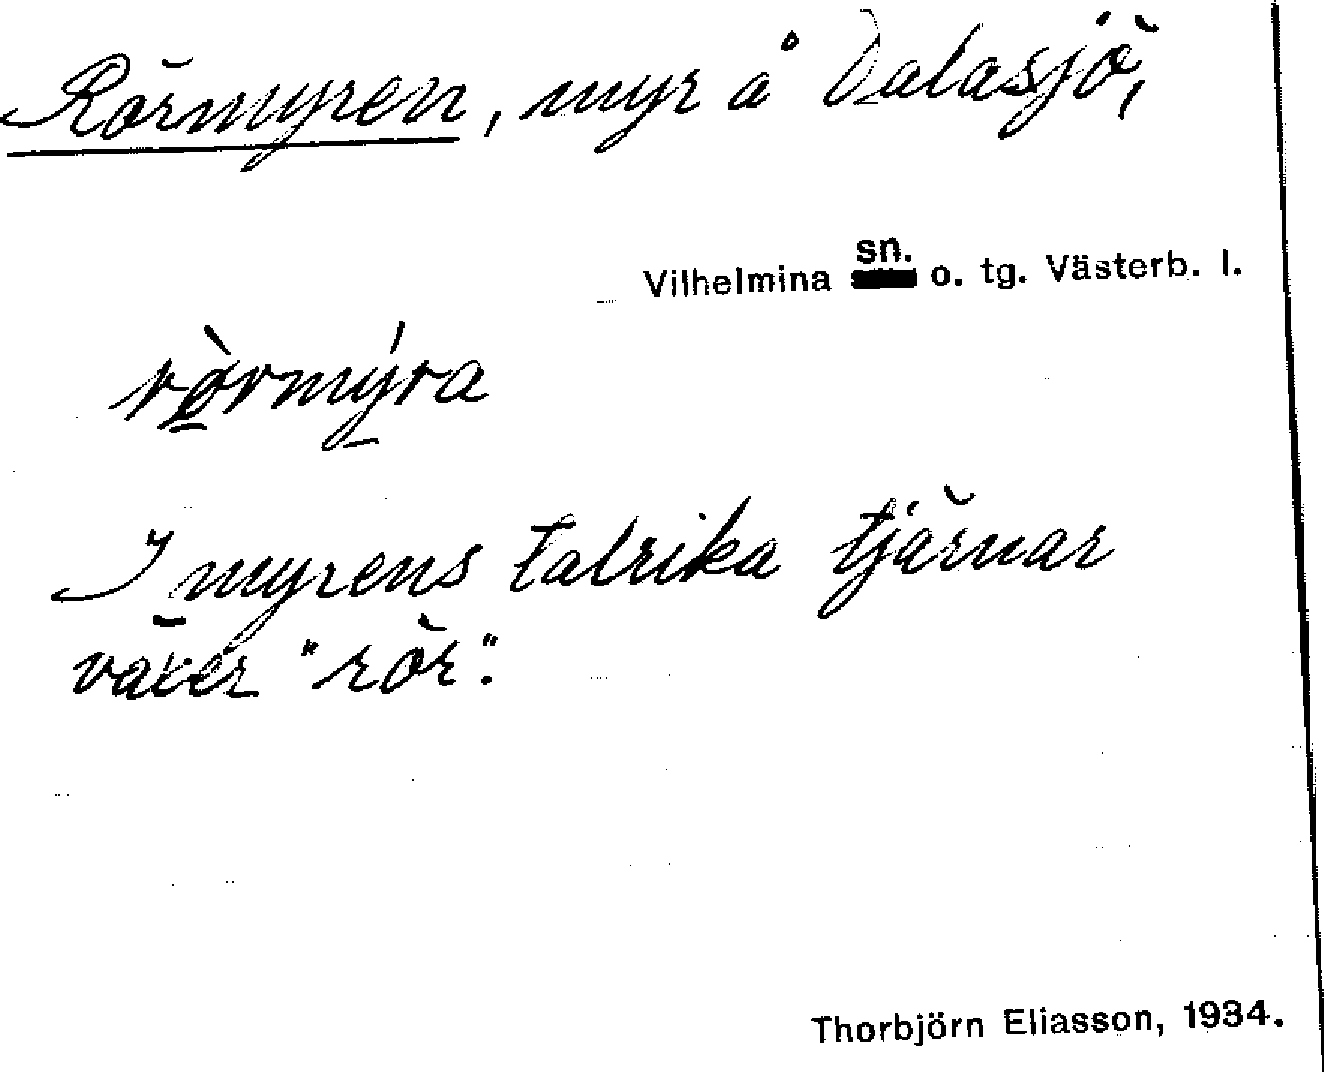 Rörmyren, myr å Dalasjö,
Vilhelmina sn. o. tg. Västerb. l.
rø̀rmýra
I myrens talrika tjärnar
växer "rör".
Thorbjörn Eliasson, 1934.